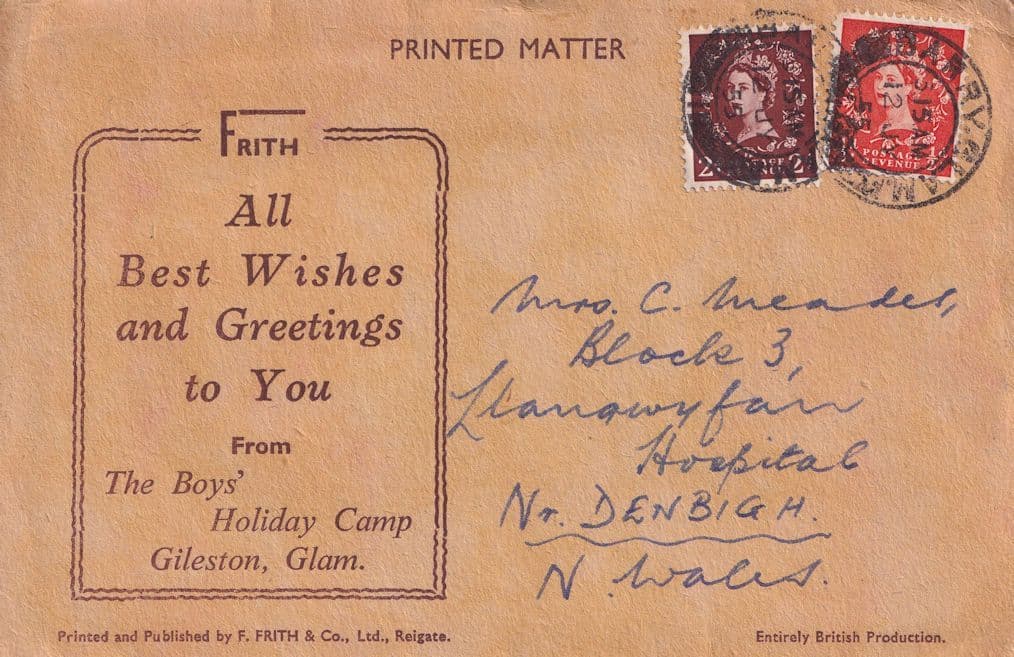 PRINTED MATTER
FRITH
All
Best Wishes
and Greetings
to You
From
The Boys'
Holiday Camp
Gileston, Glam.
Printed and Published by F. FRITH & Co., Ltd., Reigate.
POSTAGE
REVENUE
BARRY. GLAM.
12
55
Mrs. C. Meader,
Block 3,
Llangwyfan
Hospital
Nr. DENBIGH.
N. Wales.
Entirely British Production.